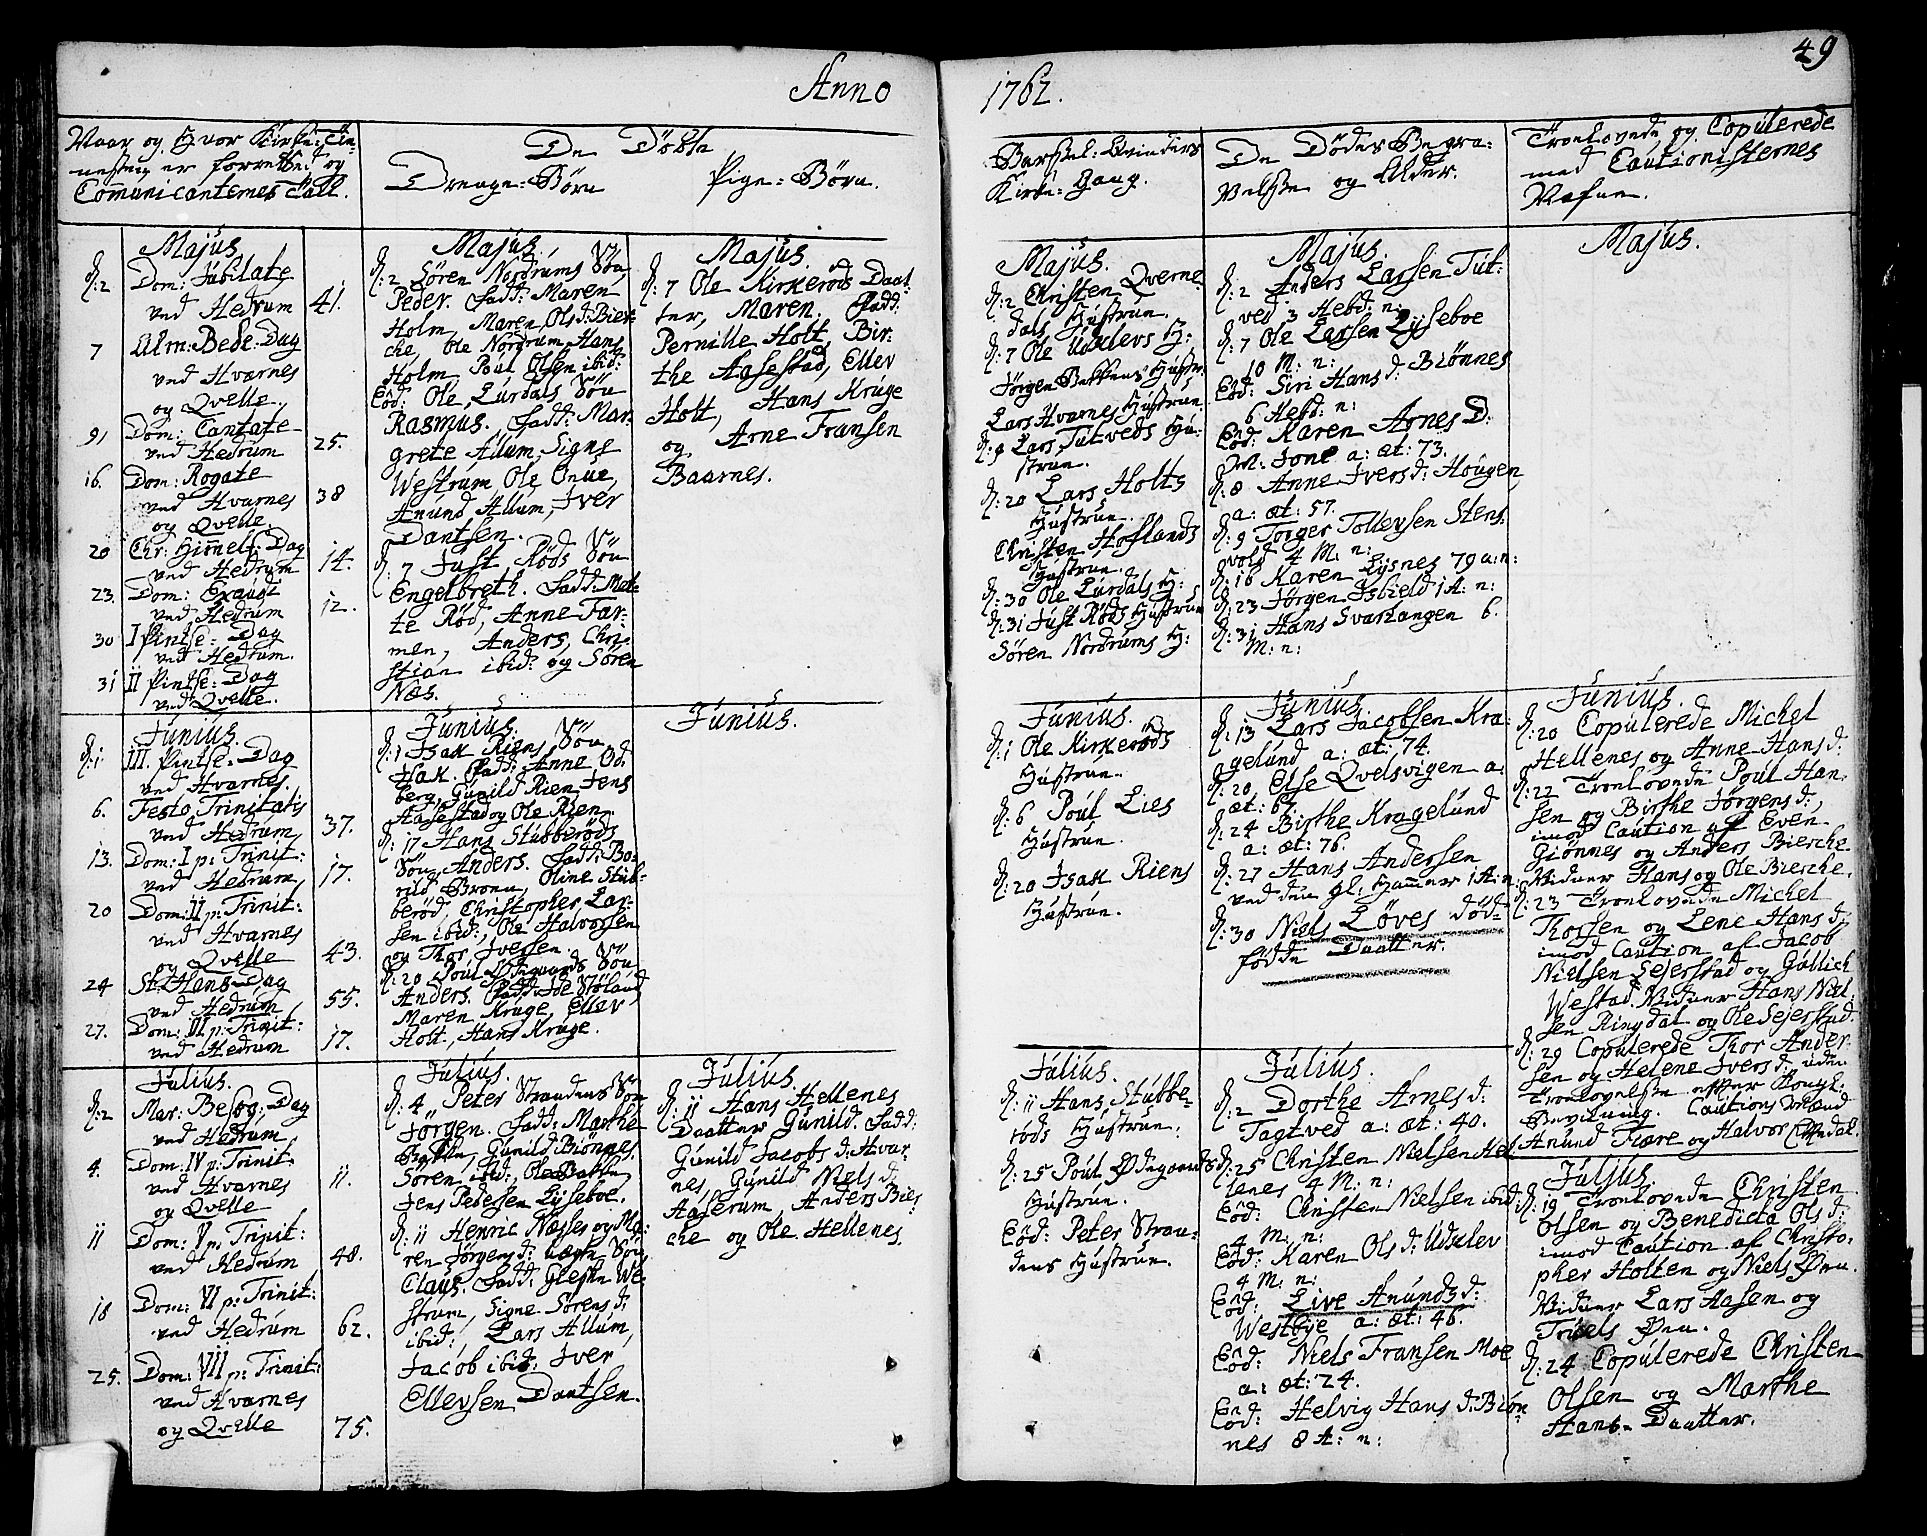 49
Anno 1762.
Naar og Hvor Kirke-Tie-
nesten er forrettet og
Comunicanternes Tall.
De Döbte
Drenge-Börn
Pige-Börn.
Barsel-Qvinders
Kirke-Gang.
De Dödes Begra-
velse og Alder.
Troelovede og Copulerede
med Cautionisternes
Nafne.
Majus.
d: 2 Dom: Jubilate
ved Hedrum 41.
7 Alm: Bede-Dag
ved Hvarnes
og Qvelle.
9 Dom: Cantate
ved Hedrum 25.
16. Dom: Rogate
ved Hvarnes 38
og Qvelle.
20 Chr: Himmelf: Dag
ved Hedrum 14.
23. Dom: Exaudi
ved Hedrum 12.
30 I Pintse-Dag
ved Hedrum.
31 II Pintse-Dag
ved Qvelle.
Junius.
d: 1 III. Pintse-Dag
ved Hvarnes.
6. Festo Trinitatis
ved Hedrum 37.
13. Dom: I p: Trinit:
ved Hedrum 17.
20 Dom: II p: Trinit:
ved Hvarnes
og Qvelle 43.
24 St. Hans-Dag
ved Hedrum 55.
27. Dom: III p: Trinit:
ved Hedrum 17.
Julius.
d: 2 Mar: Besög: Dag
ved Hedrum
4. Dom: IV p: Trinit:
ved Hvarnes 11.
og Qvelle
11 Dom: V p: Trinit:
ved Hedrum 48.
18 Dom: VI p: Trinit:
ved Hedrum 62.
25. Dom: VII p: Trinit:
ved Hvarnes
og Qvelle 75.
Majus.
d: 2 Sören Nordrums Sön
Peder. Fadd: Maren
Holm, Maren Ols d: Bier-
che, Ole Nordrum, Hans
Holm Poul Olsen ibid:
Eod: Ole Lurdals Sön
Rasmus. Fadd: Mar-
grete Allum, Signe
Westrum Ole Onue,
Anund Allum, Iver
Dantsen.
d: 7 Just Röds Sön
Engelbreth. Fadd: Met-
te Röd, Anne Far-
men, Anders, Chri-
stian ibid: og Sören
Næs.
Junius.
d: 1 Isak Riens Sön
Isak. Fadd: Anne Od-
berg, Gunild Rien, Jens
Aasestad og Ole Rien
d: 17 Hans Stubberöds
Sön Anders. Fadd: Bo-
rild Broen, Oline Stub-
beröd, Christopher Lar-
sen ibid:, Ole Halvorsen
og Thor Iversen.
d: 20 Poul Ödegaards Sön
Anders. Fadd: Joe Nöland
Maren Kruge, Ellev
Holt, Hans Kruge.
Julius.
d: 4 Peter Strandens Sön
Jörgen. Fadd: Marthe
Bakke, Gunild Biönnes,
Sören ibid:, Ole Bakke
Jens Pedersen Lyseboe.
d: 11 Henric Næsses og Ma-
ren Jörgens d: uægte Sön
Claus. Fadd: Gieske We-
strum, Signe Sörens d:
ibid: Lars Allum,
Jacob ibid: Iver
Ellevsen Dantsen.
Majus.
d: 7 Ole Kirkeröds Daat-
ter, Maren. Fadd:
Pernille Holt, Bir-
the Aasestad, Ellev
Holt, Hans Kruge
og Arne Fransen
Baarnes.
Junius.
Julius.
d: 11 Hans Hellenes
Daatter Gunild. Fadd:
Gunild Jacobs d: Hvar-
nes, Gunild Niels d:
Aaserum, Anders Bier-
che og Ole Hellenes.
Majus.
d: 2 Christen Qverne-
dals Hustrue.
d: 7 Ole Udklevs H:
Jörgen Bakkens Hustr:
Lars Hvarnes Hustrue.
d: 9 Lars Tutveds Hu-
strue.
d: 20 Lars Holts
Hustrue.
Christen Hoflands
Hustrue.
d: 30 Ole Lurdals H:
d: 31 Just Röds Hustrue
Sören Nordrums H:
Junius.
d: 1 Ole Kirkeröds
Hustrue.
d: 6 Poul Lies
Hustrue.
d: 20 Isak Riens
Hustrue.
Julius.
d: 11 Hans Stubbe-
röds Hustrue.
d: 25 Poul Ödegaards
Hustrue.
Eod: Peter Stran-
dens Hustrue.
Majus.
d: 2 Anders Larsen Tut-
ved 3 Hebd: n:
d: 7 Ole Larsen Lyseboe
10 M: n:
Eod: Siri Hans d: Biönnes
6 Hebd: n:
Eod: Karen Arnes D:
Jone a: æt: 73.
d: 8 Anne Ivers d: Hougen
a: æt: 57.
d: 9 Torger Tollevsen Stens-
vold 4 M: n:
d: 16 Karen Lysnes 79 a: n:
d: 23 Jörgen Isbield 1 A: n:
d: 31 Hans Svartangen 6
M: n:
Junius.
d: 13 Lars Jacobsen Kra-
gelund a: æt: 74.
d: 20 Else Qvelsvigen a:
æt: 67.
d: 24 Birthe Kragelund
a: æt: 76.
d: 27 Hans Andersen
ved den gl: Hammer 1 A: n:
d: 30 Niels Löves död-
födde Daatter.
Julius.
d: 2 Dorthe Arnes d:
Tagtved a: æt: 40.
d: 25 Christen Nielsen Hel-
lenes 4 M: n:
Eod: Christen Nielsen ibid:
4 M: n:
Eod: Karen Ols d: Udklev
4 M: n:
Eod: Live Anunds d:
Westbye a: æt: 46.
Eod: Niels Fransen Moe
a: æt: 24.
Eod: Helvig Hans d: Biön-
nes 8 A: n:
Majus.
Junius.
d: 20 Copulerede Michel
Hellenes og Anne Hans d:
d: 22 Troelovede Poul Han-
sen og Birthe Jörgens d:,
imod Caution af Even
Giönnes og Anders Bierche
Vidner Hans og Ole Bierche.
d: 23 Troelovede Michel
Thorsen og Lene Hans d:
imod Caution af Jacob
Nielsen Sejerstad og Gullich
Westad. Vidner Hans Niel-
sen Ringdal og Ole Sejerstad.
d: 29 Copulerede Thor Ander-
sen og Helene Ivers d: uden
Troelovelse efter Kongl:
Bevilning. Cautions Mænd
Anund Fiære og Halvor Elfvedal.
Julius.
d: 19 Troelovede Christen
Olsen og Benedicta Ols d:
imod Caution af Christo-
pher Holten og Niels Øen.
Vidner Lars Aasen og
Truels Øen.
d: 24 Copulerede Christen
Olsen og Marthe
Hans-Daatter.